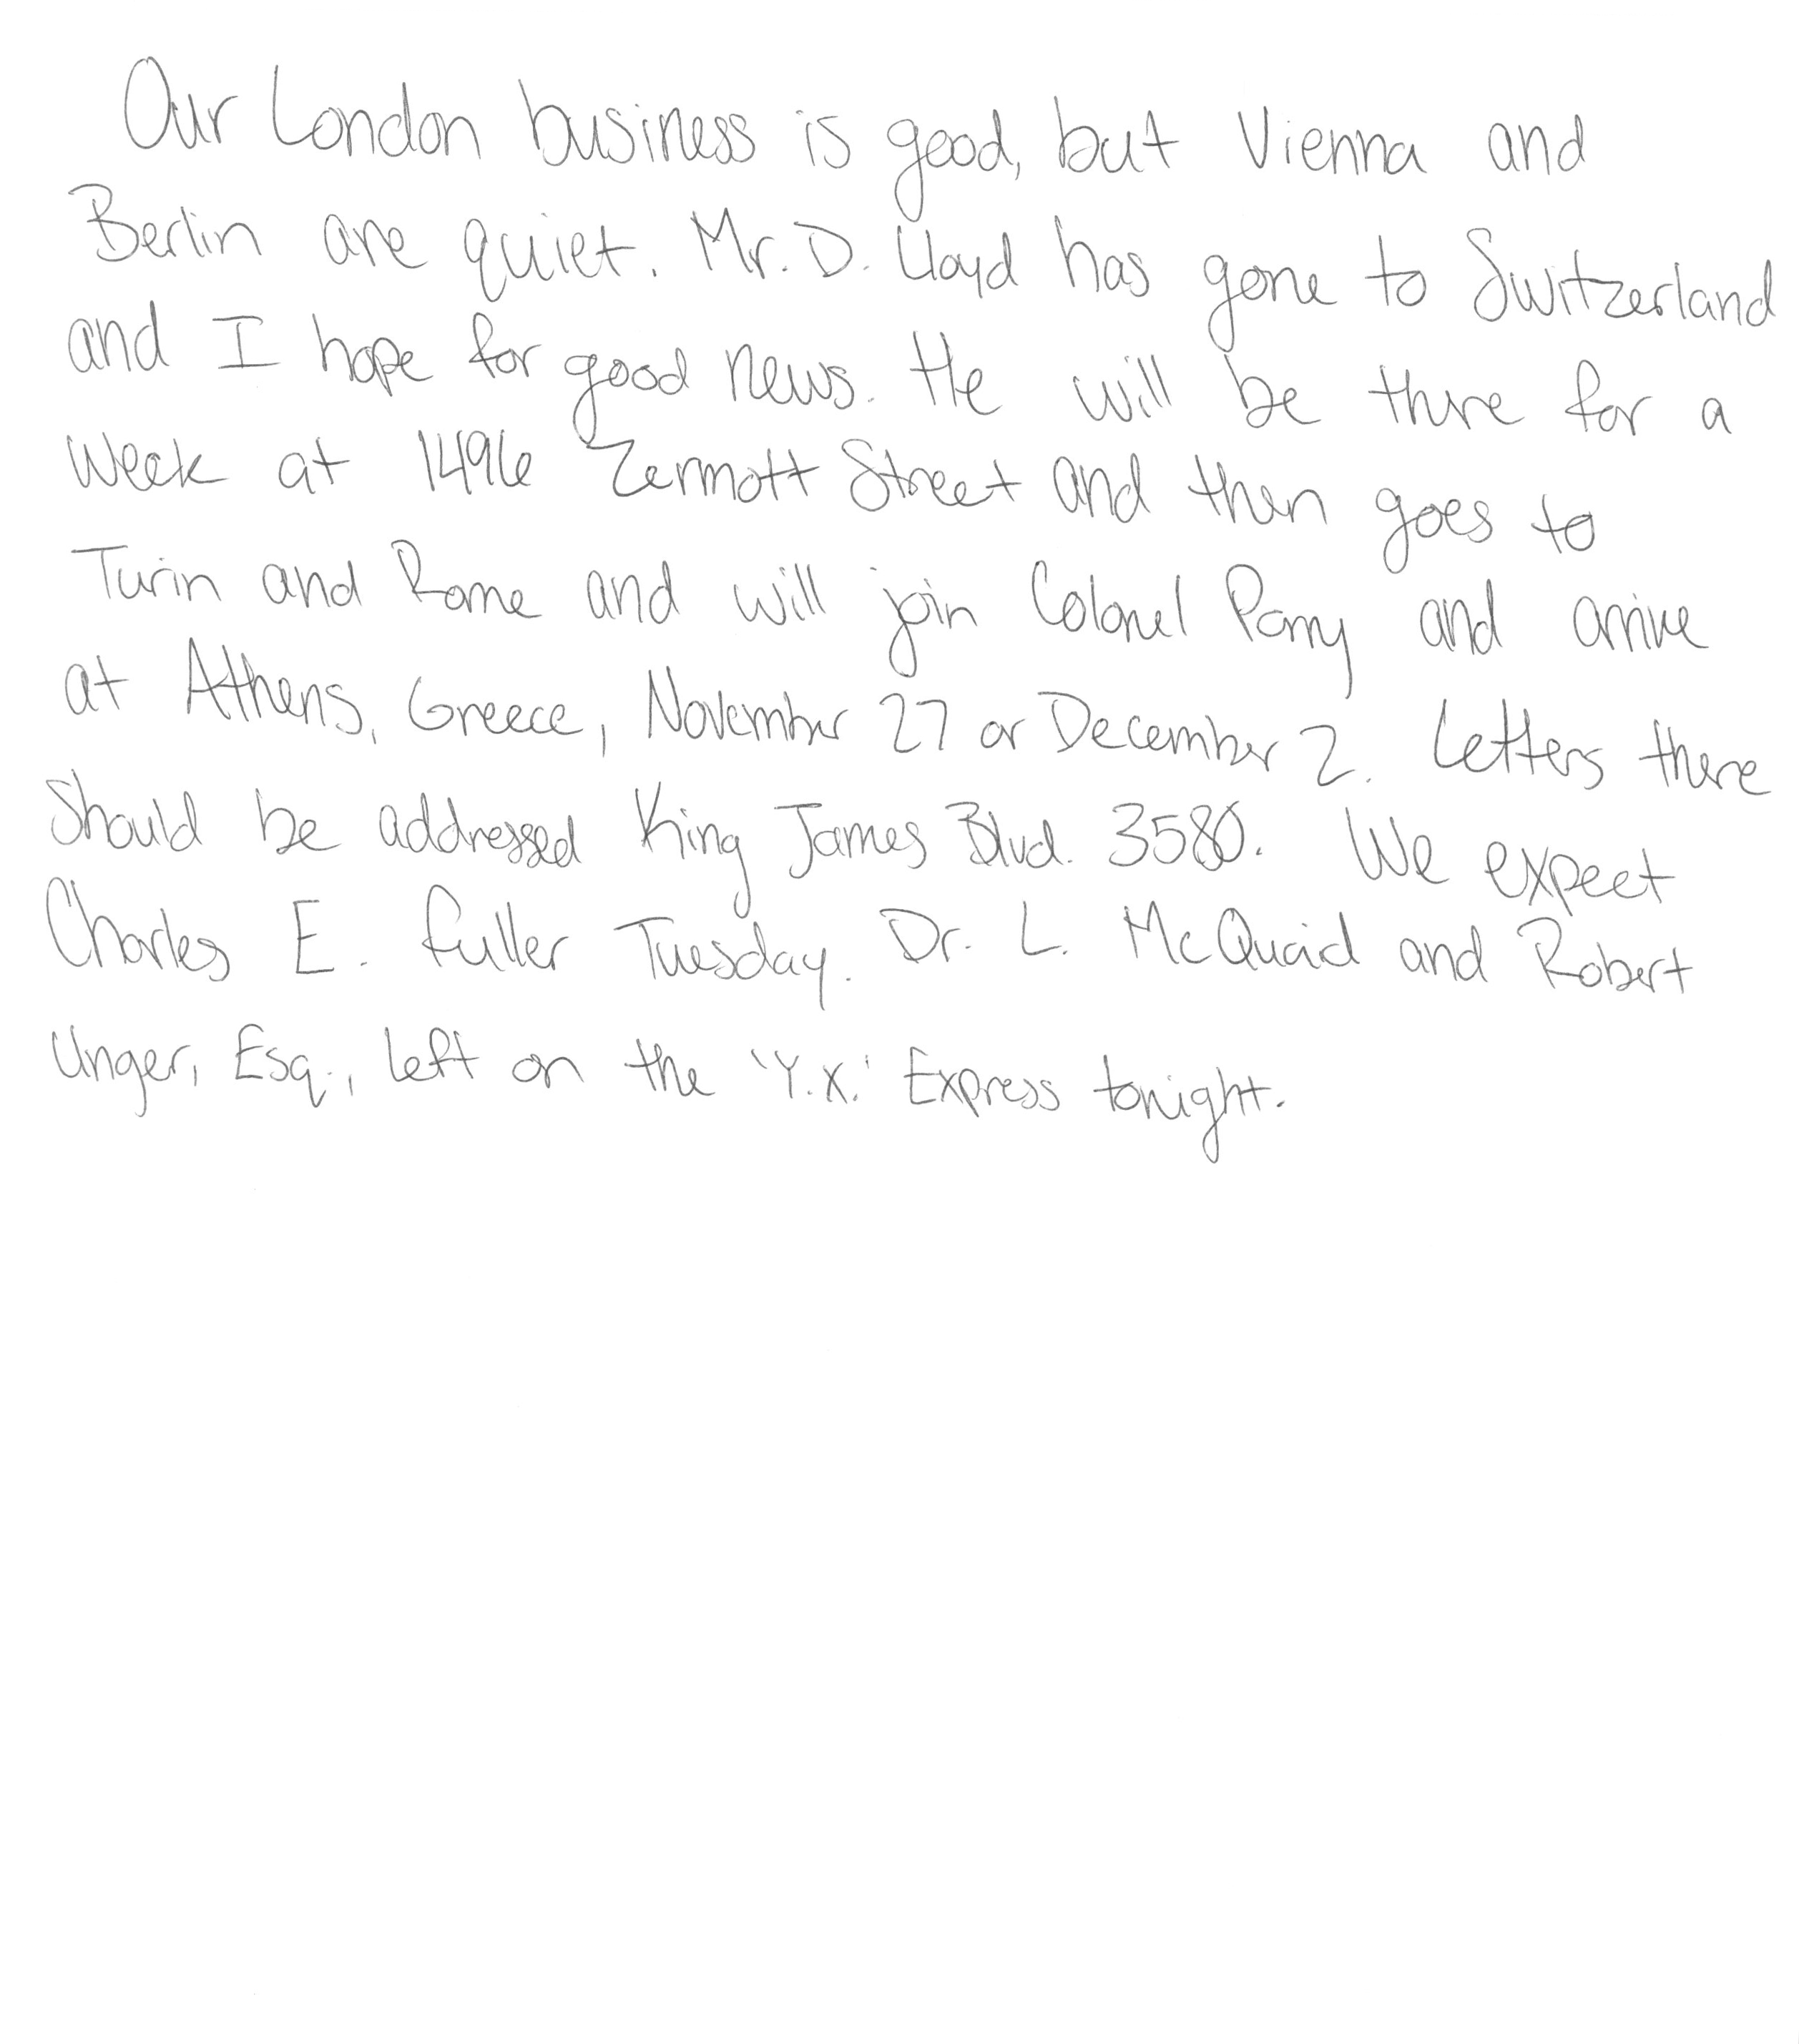 Our London business is good, but Vienna and
Berlin are quiet. Mr. D. Lloyd has gone to Switzerland
and I hope for good news. He will be there for a
week at 1496 Zermott Street and then goes to
Turin and Rome and will join Colonel Parry and arrive
at Athens, Greece, November 27 or December 2. Letters there
should be addressed King James Blvd. 3580. We expect
Charles E. Fuller Tuesday. Dr. L. McQuaid and Robert
Unger, Esq., left on the "Y.X." Express tonight.